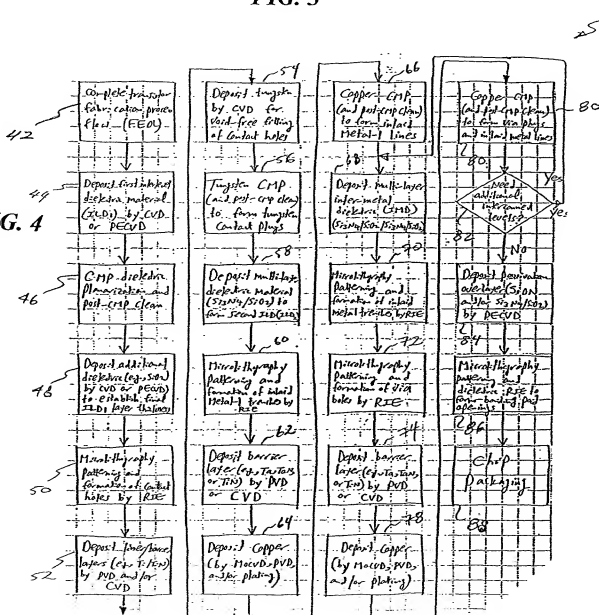 FIG. 4
42
Complete transistor
fabrication process
flow (FEOL)
44
Deposit first interlevel
dielectric material
(ILD1) by CVD
or PECVD
46
CMP dielectric
planarization and
post-CMP clean
48
Deposit additional
dielectric (e.g., SiO2)
by CVD or PECVD
to establish final
ILD1 layer thickness
50
Microlithography
patterning and
formation of contact
holes by RIE
52
Deposit liner/barrier
layers (e.g., Ti/TiN)
by PVD and/or
CVD
54
Deposit tungsten
by CVD for
void-free filling
of contact holes
56
Tungsten CMP
(and post-CMP clean)
to form tungsten
contact plugs
58
Deposit multilayer
dielectric material
(Si3N4/SiO2) to
form second ILD (ILD2)
60
Microlithography
patterning and
formation of inlaid
Metal-1 trenches by
RIE
62
Deposit barrier
layer (e.g., Ta, TaN,
or TiN) by PVD
or CVD
64
Deposit Copper
(by MOCVD, PVD,
and/or plating)
66
Copper CMP
(and post-CMP clean)
to form inlaid
Metal-1 lines
68
Deposit multi-layer
inter-metal
dielectric (IMD)
(Si3N4/SiO2/Si3N4/SiO2)
70
Microlithography
patterning and
formation of inlaid
metal trenches by RIE
72
Microlithography
patterning and
formation of via
holes by RIE
74
Deposit barrier
layer (e.g., Ta, TaN,
or TiN) by PVD
or CVD
78
Deposit Copper
(by MOCVD, PVD,
and/or plating)
80
Copper CMP
(and post-CMP clean)
to form via plugs
and inlaid metal lines
80
Need
additional
interconnect
levels?
Yes
Yes
82
No
Deposit passivation
overlayer (SiON
and/or Si3N4/SiO2)
by PECVD
84
Microlithography
patterning and
dielectric RIE to
form bonding pad
openings
86
Chip
Packaging
88